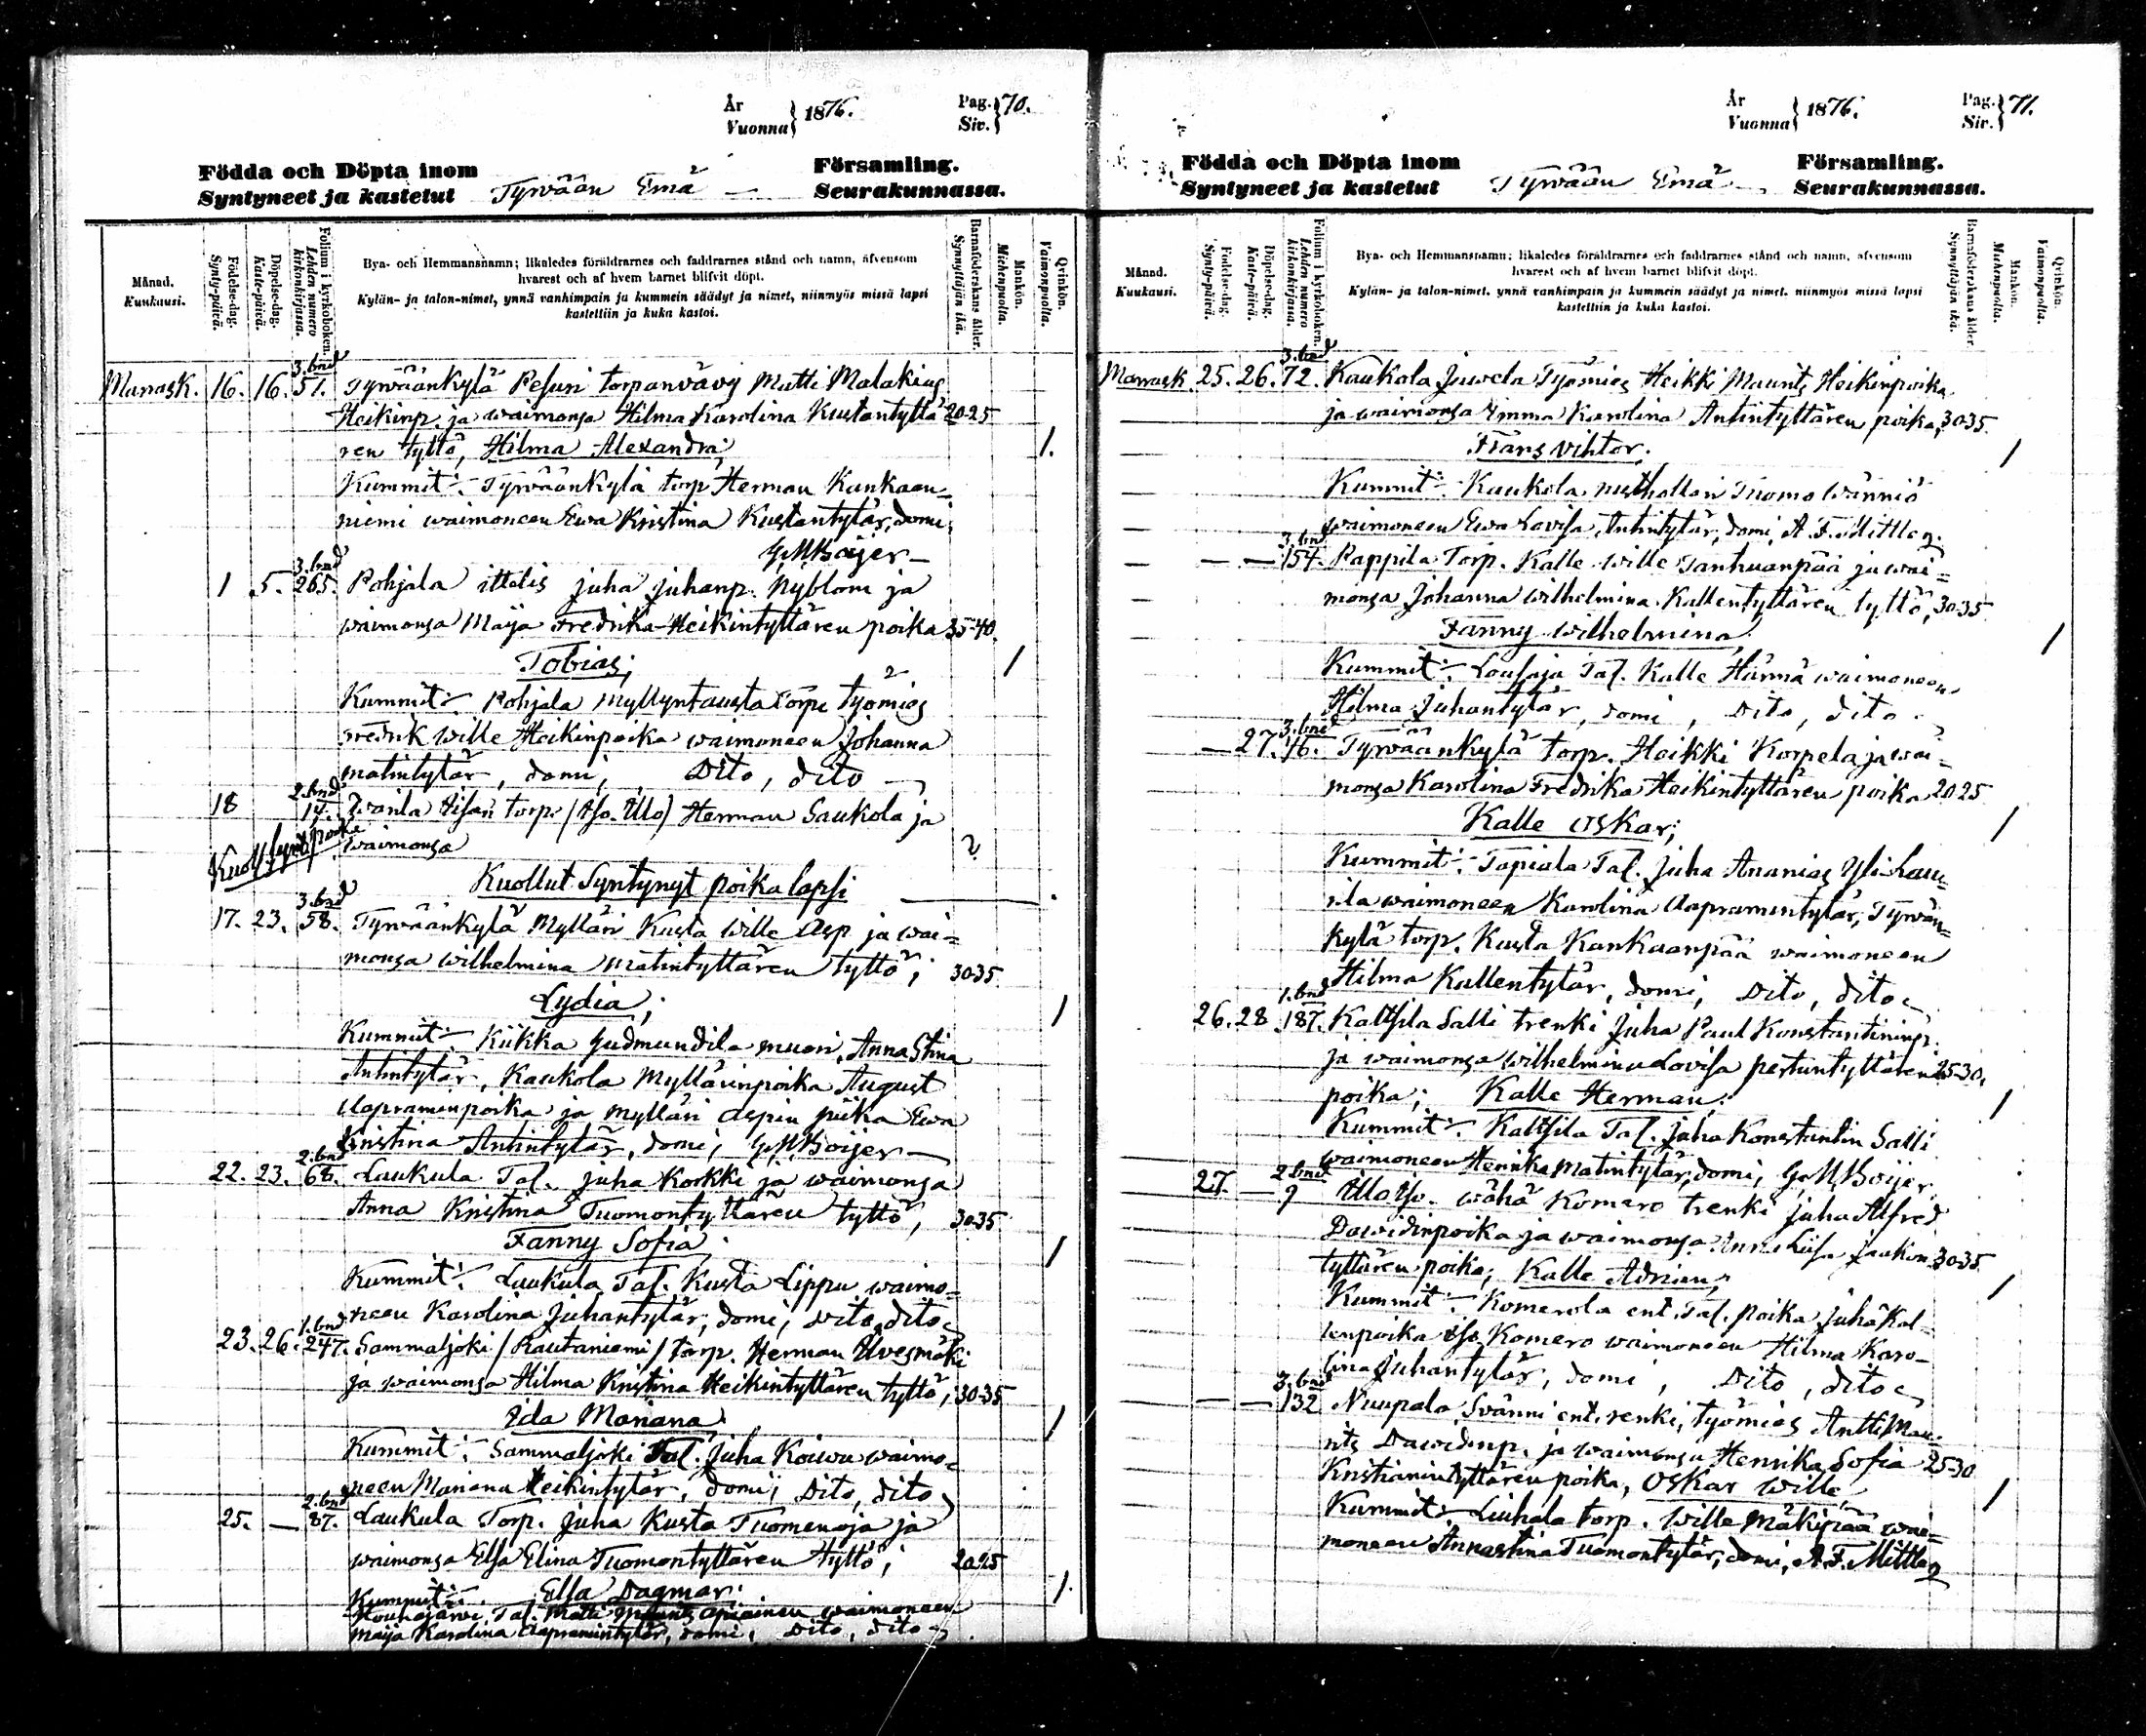 År
Vuonna } 1876.
Pag.
Siv. } 70.
Födda och Döpta inom
Syntyneet ja kastetut
Tyrvään Emä —
Församling.
Seurakunnassa.
Månad.
Kuukausi.
Födelse-dag.
Synty-päivä.
Döpelse-dag.
Kaste-päivä.
Folium i kyrkoboken.
Lehden numero kirkonkirjassa.
Bya- och Hemmansnamn; likaledes föräldrarnes och faddrarnes stånd och namn, äfvensom
hvarest och af hvem barnet blifvit döpt.
Kylän- ja talon-nimet, ynnä vanhimpain ja kummein säädyt ja nimet, niinmyös missä lapsi
kastettiin ja kuka kastoi.
Barnaföderskans ålder.
Synnyttäjän ikä.
Mankön.
Miehenpuolta.
Qvinkön.
Vaimonpuolta.
3. bnd
Marrask. 16. 16. 51. Tyrväänkylä torpanvävy Matti Malakias
Heikinp. ja waimonsa Hilma Karolina Kustantyttä 20-25
ren tyttö, Hilma Alexandra; 1.
Kummit: Tyrväänkylä torp Herman Kankaan-
niemi waimoneen Ewa Kristina Kustantytär, domi,
G. M. Boijer —
3. bnd
1 5. 265. Pohjala ittellis Juha Juhanp. Nyblom ja
waimonsa Maija Fredrika Heikintyttären poika 35-40.
Tobias; 1
Kummit: Pohjala Myllyntausta työmies
Fredrik Wille Heikinpoika waimoneen Johanna
Matintytär, domi, Dito, dito —
2. bnd
18 torp. Herman Saukola ja
waimonsa ?
Kuollut Syntynyt poika lapsi
3. bnd
17. 23. 58. Tyrväänkylä Mylläri Kusta Wille Asp ja wai=
monsa Wilhelmina Matintyttären tyttö; 30-35
Lydia; 1
Kummit: Kiikka Gudmundila muori, Anna Stina
Antintytär, Kaukola Myllärinpoika August
Aapramenpoika ja mylläri Aspin piika Ewa
Kristina Antintytär, domi, G. M. Boijer —
2. bnd
22. 23. 68. Laukula Tal. Juha Korkki ja waimonsa
Anna Kristina Tuomontyttären tyttö, 30-35
Fanny Sofia. 1
Kummit: Laukula Tal. Kusta Lippu waimo=
neen Karolina Juhantytär, domi, Dito, dito
1. bnd
23. 26. 247. Sammaljoki / Rautaniemi / torp. Herman Ilvesmäki
ja waimonsa Hilma Kristina Heikintyttären tyttö; 30-35
Ida Mariana 1
Kummit: Sammaljoki Tal. Juha Koiwu waimo=
neen Mariana Heikintytär, domi, Dito, dito
2. bnd
25. — 87. Laukula Torp. Juha Kusta Tuomenoja ja
waimonsa Elsa Elina Tuomontyttären tyttö; 20-25
Kummit: Ella Dagmar; 1.
Houhajärvi Tal. Matti waimoneen
Maija Karolina Aapramintytär, domi, Dito, dito
År
Vuonna } 1876.
Pag.
Siv. } 71.
Födda och Döpta inom
Syntyneet ja kastetut
Tyrvään Emä
Församling.
Seurakunnassa.
Månad.
Kuukausi.
Födelse-dag.
Synty-päivä.
Döpelse-dag.
Kaste-päivä.
Folium i kyrkoboken.
Lehden numero kirkonkirjassa.
Bya- och Hemmansnamn; likaledes föräldrarnes och faddrarnes stånd och namn, äfvensom
hvarest och af hvem barnet blifvit döpt.
Kylän- ja talon-nimet, ynnä vanhimpain ja kummein säädyt ja nimet, niinmyös missä lapsi
kastettiin ja kuka kastoi.
Barnaföderskans ålder.
Synnyttäjän ikä.
Mankön.
Miehenpuolta.
Qvinkön.
Vaimonpuolta.
3. bnd
Marrask. 25. 26. 72. Kaukola Juwela Työmies Heikki Maurits Heikinpoika
ja waimonsa Emma Karolina Antintyttären poika, 30-35.
Frans Vihtor; 1
Kummit: Kaukola rusthollari Tuomo Wänniö
waimoneen Ewa Lovisa Antintytär, domi, A. F. Mittler.
3. bnd
— — 154. Pappila Torp. Kalle Wille Tanhuanpää ja wai=
monsa Johanna Wilhelmina Kallentyttären tyttö, 30-35
Fanny Wilhelmina, 1
Kummit: Lousaja Tal. Kalle Härmä waimoneen
Hilma Juhantytär, domi, Dito, dito
3. bnd
— 27. 46. Tyrväänkylä torp. Heikki Korpela ja wai=
monsa Karolina Fredrika Heikintyttären poika 20-25
Kalle Oskar; 1
Kummit: Tapiola Tal. Juha Ananias Yli-Lau=
rila waimoneen Karolina Aapramintytär, Tyrvään=
kylä torp. Kusta Kankaanpää waimoneen
Hilma Kallentytär, domi, Dito, dito
1. bnd
26. 28. 187. Kaltsila Salli trenki Juha Paul Konstantininp.
ja waimonsa Wilhelmina Lovisa Perttuntyttären 25-30.
poika; Kalle Herman; 1
Kummit: Kaltsila Tal. Juha Konstantin Salli
waimoneen Henrika Matintytär, domi, G. M. Boijer.
2 bnd
27. — 9 Illo Wähä Komero trenki Juha Alfred
Dawidinpoika ja waimonsa Anna Liisa Jaakon 30-35.
tyttären poika; Kalle Adrian; 1
Kummit: Komerola ent. Tal. poika Juha Kal=
lenpoika Iso Komero waimoneen Hilma Karo-
lina Juhantytär, domi, Dito, dito
3. bnd
— — 132 Nuupala Svänni ent. renki, työmies Antti Mau-
rits Dawidinp. ja waimonsa Henrika Sofia 25-30
Kristianintyttären poika, Oskar Wille 1
Kummit: Liuhala torp. Wille Mäkipää wai=
moneen Annastina Tuomontytär, domi, A. F. Mittler